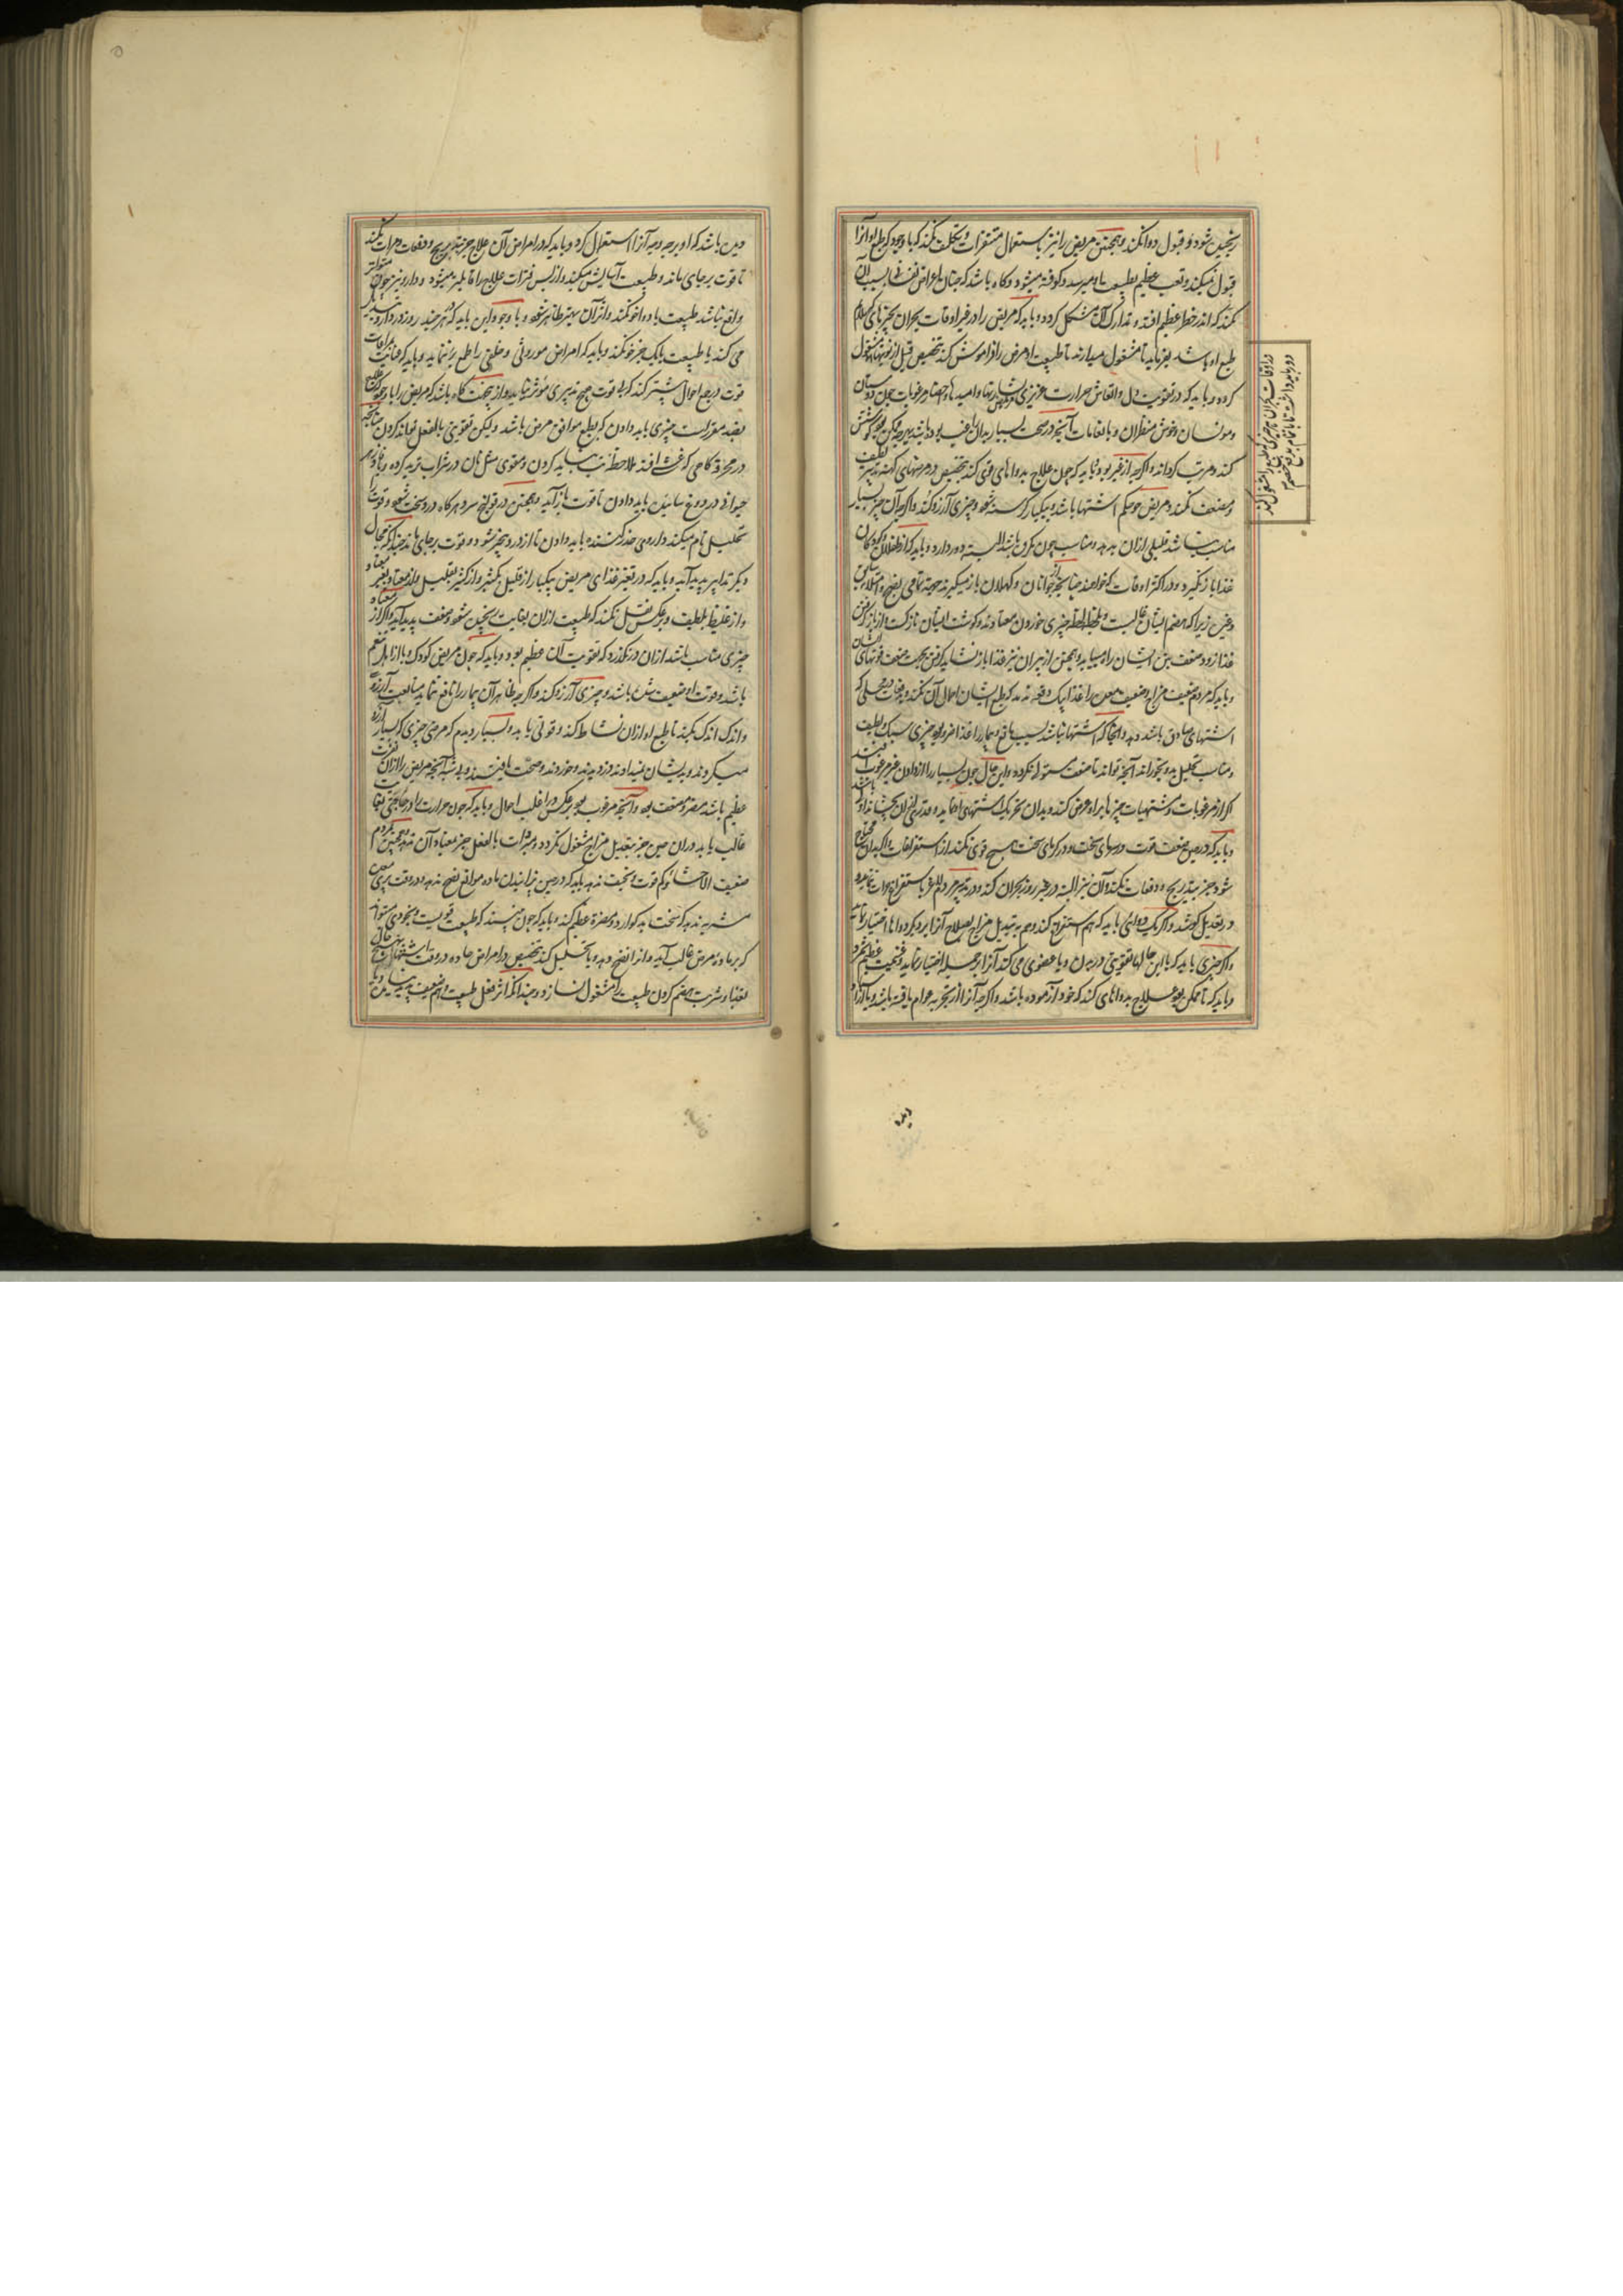 رنجیده شود و قبول دوا نکند و همچنین مریض را نیز باستعمال متنفرات تکلیف نکند که با وجود که طبع او آنرا
قبول نمیکند و تعب عظیم بطبیعت او میرسد و کوفته میشود و کاه باشد که چنان اعراض نفسانی بسبب آن
کند که اندر خطر عظیم افتد و تدارک آن مشکل کردد و باید که مریض را در غیر اوقات بحران بچیزهای که ملایم
طبع او باشد بفرماید تا مشغول میدارند تا طبیعت او مرض را فراموش کند بتخصیص قبل از نوبتها مشغول
کرده و باید که در تقویت دل و انعاش حرارت غریزی بشارتها و امیدها و احضار مرغوبات چون دوستان
و مونسان و خوش منظران و با نغامات آنچه در صحت بسیار بدان راغب بوده باشد بهرچه ممکن بود کوشش
کند و مرتب کرداند و اکرچه از غیر بود و نباید که چون علاج بدواهای قوی کند بتخصیص در مرضهای کهنه تدبیر لطیف
و مضعف نکند و مریض چون بیکم اشتها باشد و بیکبار کرسنه شود و چیزی آرزو کند و اکرچه آن چیز بسیار
مناسب نباشد قلیلی ازان بدهد و مناسب چون مکروه باشد البته دور دارد و باید که از طفلان و کودکان
غذا باز نکیرد و در اکثر اوقات که خواهند چنانچه از جوانان و کهلان باز میکیرند جهة تمامی نضج و استلای سابق
و غیر زیرا که هضم ایشان غالبست و لحظه لحظه چیزی خوردن معتادند و کوشت ایشان نازکست از باز کرفتن
غذا زود ضعف بدن ایشان راه میابد و همچنین از پیران نیز غذا باز نشاید کرفتن بجهت ضعف قوتهای ایشان
و باید که مردم ضعیف مزاج و ضعیف معده را غذا بیک دفعه ندهد که طبع ایشان احتمال آن نکند و بدفعات در محلی که
اشتهای صادق باشد دهد و آنجا که اشتها نباشد بسبب مانع و بیمار را غذا ضرور بود چیزی سبک و لطیف
و مناسب تحلیل بدو بخوراند آنچه تواند تا ضعف مستولی نکردد و این حال چون بسیار را از دادن غیر مرغوب افتد
اکر از مرغوبات و مشتهیات چیزها براو عرض کند و بدان تحریک اشتهای او نماید و قدری ازان بچشاند اولی باشد
و باید که در حین ضعف قوت و سرمای سخت و در کرمای سخت هیچ قوی نکند از استفراغات و اکر بدان محتاج
شود جز بتدریج و دفعات نکند و آن نیز البته در غیر روز بحران کند و در تدبیر مردم لاغر باستفراغ جرات ننماید
در تعدیل کوشد و اکر یک دوائی باید که هم استفراغ کند و هم به تبدیل مزاج بصلاح آنرا بر دیکر دواها اختیار نماید
و اکر چیزی باید که با این حالها تقویتی در بدن و یا عضوی می کند آنرا از جمله اختیار نماید و غنیمت عظیم شمرد
و باید که تا ممکن بود علاج بدواهای کند که خود آزموده باشد و اکرچه آنرا از تجربه عوام یافته باشد و یا آنرا
در اوقات بحران تا چیزی که طبع را مشغول کند
دور باید داشت تا باتمام بدفع خصم
دین باشد که او بوجه درجه آنرا استعمال کرد و باید که در امراض آن علاج جز بتدریج و دفعات و مرات نکند
تا قوت برجای ماند و طبیعت آسایش میکند و از بس فترات علاج را قابلتر میشود و دارو نیز چون متواتر
واقع نباشد طبیعت با دوا خو نکند و اثر آن بهتر ظاهر شود و با وجود این باید که هر چند روز دارو تبدیل
می کند یا طبیعت با یک چیز خو نکند و باید که امراض موروثی و خلقی را طمع برء ننماید و باید که عنایت بمراعات
قوت در جمیع احوال بیشتر کند که بی قوت هیچ تدبیری مؤثر نباشد و از این جهت کاه باشد که مریض را با وجود آنکه
بضد مقررست چیزی باید دادن که بطبع موافق مرض باشد ولیکن تقویتی بالفعل تواند کردن چنانکه
در محرقه کاهی که غشی افتد ملاحظه تب نباید کردن و مقوی مثل نان در شراب ترید کرده و
حیوانی در دوغ سائیده باید دادن تا قوت باز آید و همچنین در قولنج سرد هرکاه درد سخت شود و قوت را
تحلیل تمام میکند داروی خدر کننده باید دادن تا از درد بیخبر شود و قوت برجای ماند چندانکه مجال
دیکر تدابیر پدید آید و باید که در تغییر غذای مریض بیکبار از قلیل بکثیر و از کثیر بقلیل و از معتاد بغیر معتاد
و از غلیظ بلطیف و برعکس نقل نکند که طبیعت ازان بغایت رنجیده شود و ضعف پدید آید و اکر از معتاد
چیزی مناسب باشد ازان درنکذرد که تقویت آن عظیم بود و باید که چون مریض کودک و یا از اهل تنعم
باشد و قوت او ضعیف شده باشد و چیزی آرزو کند و اکرچه ظاهر آن بیمار را نافع ننماید متابعت آرزو
و اندک اندک بکند تا طبع او ازان نشاط کند و قوتی یابد و بسیار دیدم که مرضی چیزی که بسیار آرزو
میکردند و بدیشان نمیدادند دزدیدند و خوردند و صحت یافتند و بدستی آنچه مریض را ازان نفرت
عظیم باشد مضر و مضعف بود و آنچه مرغوب بود برعکس در اغلب احوال و باید که چون حرارت را در جانبی
غالب یابد دران حین جز بتعدیل مزاج مشغول نکردد و مبردات بالفعل جز معتاد آن ندهد و همچنین بمردم
ضعیف الاحشا و کم قوت و نحیف ندهد باید که در حین پزانیدن ماده موانع نضج ندهد و در وقت پری معده
شربه ندهد که سخت بد کوارد و مضرة عظیم کند و باید که چون بیند که طبیعت قویست و بخودی خود میتواند
که بر ماده مرض غالب آید و انرا نضج دهد و یا تحلیل کند بتخصیص در امراض حاده در وقت اشتها به هیچ حال
بغذا و شربت هضم کردن طبیعت را مشغول نسازد و چندانکه اثر فعل طبیعت را ضعیف